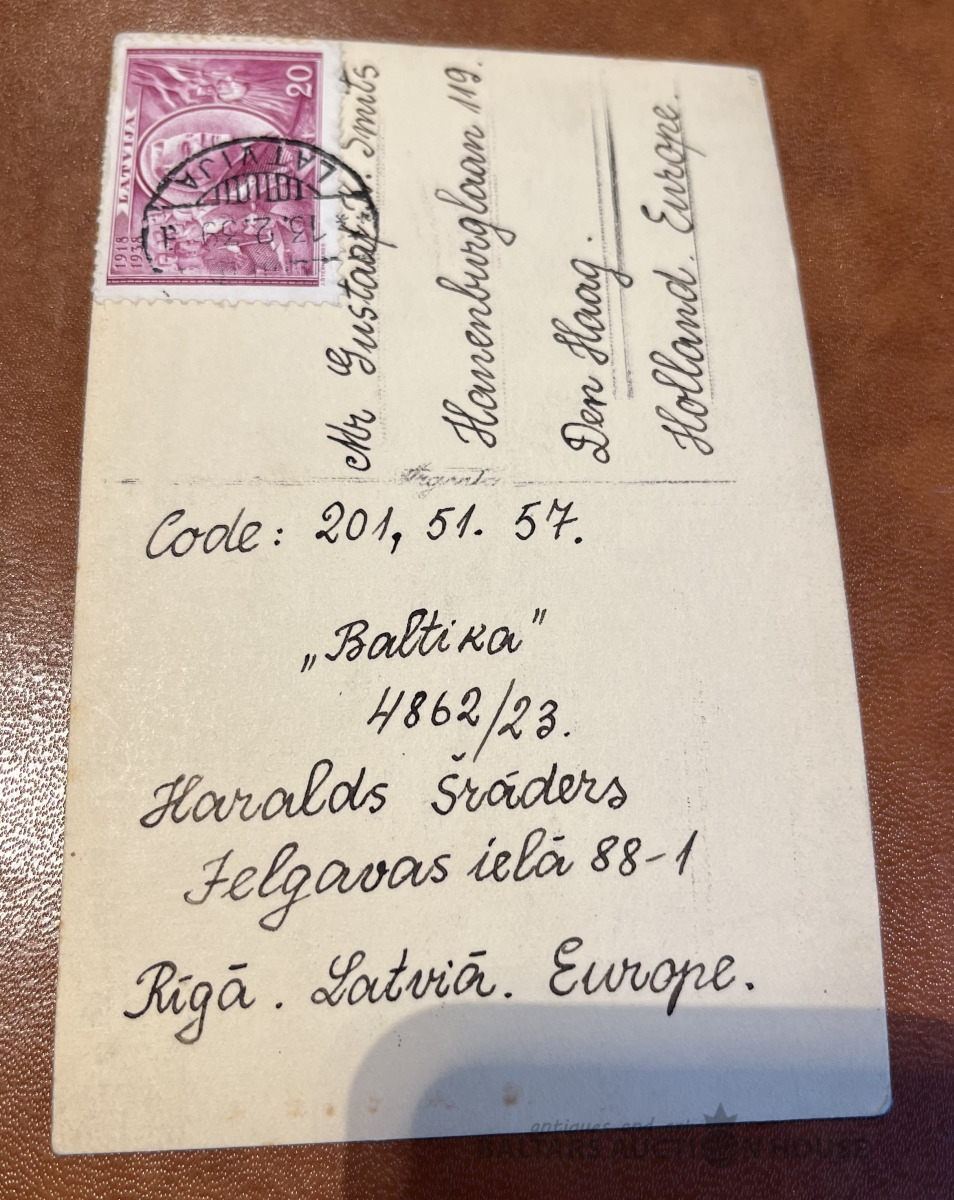 LATVIJA
20
1918
1938
LATVIJA
13.2.39
Mr Gustaaf K. Smits
Hanenburglaan 119.
Den Haag.
Holland. Europe.
Code: 201, 51. 57.
„Baltika"
4862/23.
Haralds Šrāders
Jelgavas ielā 88-1
Rīgā. Latviā. Europe.
antiques and art
BALTARS AUCTION HOUSE